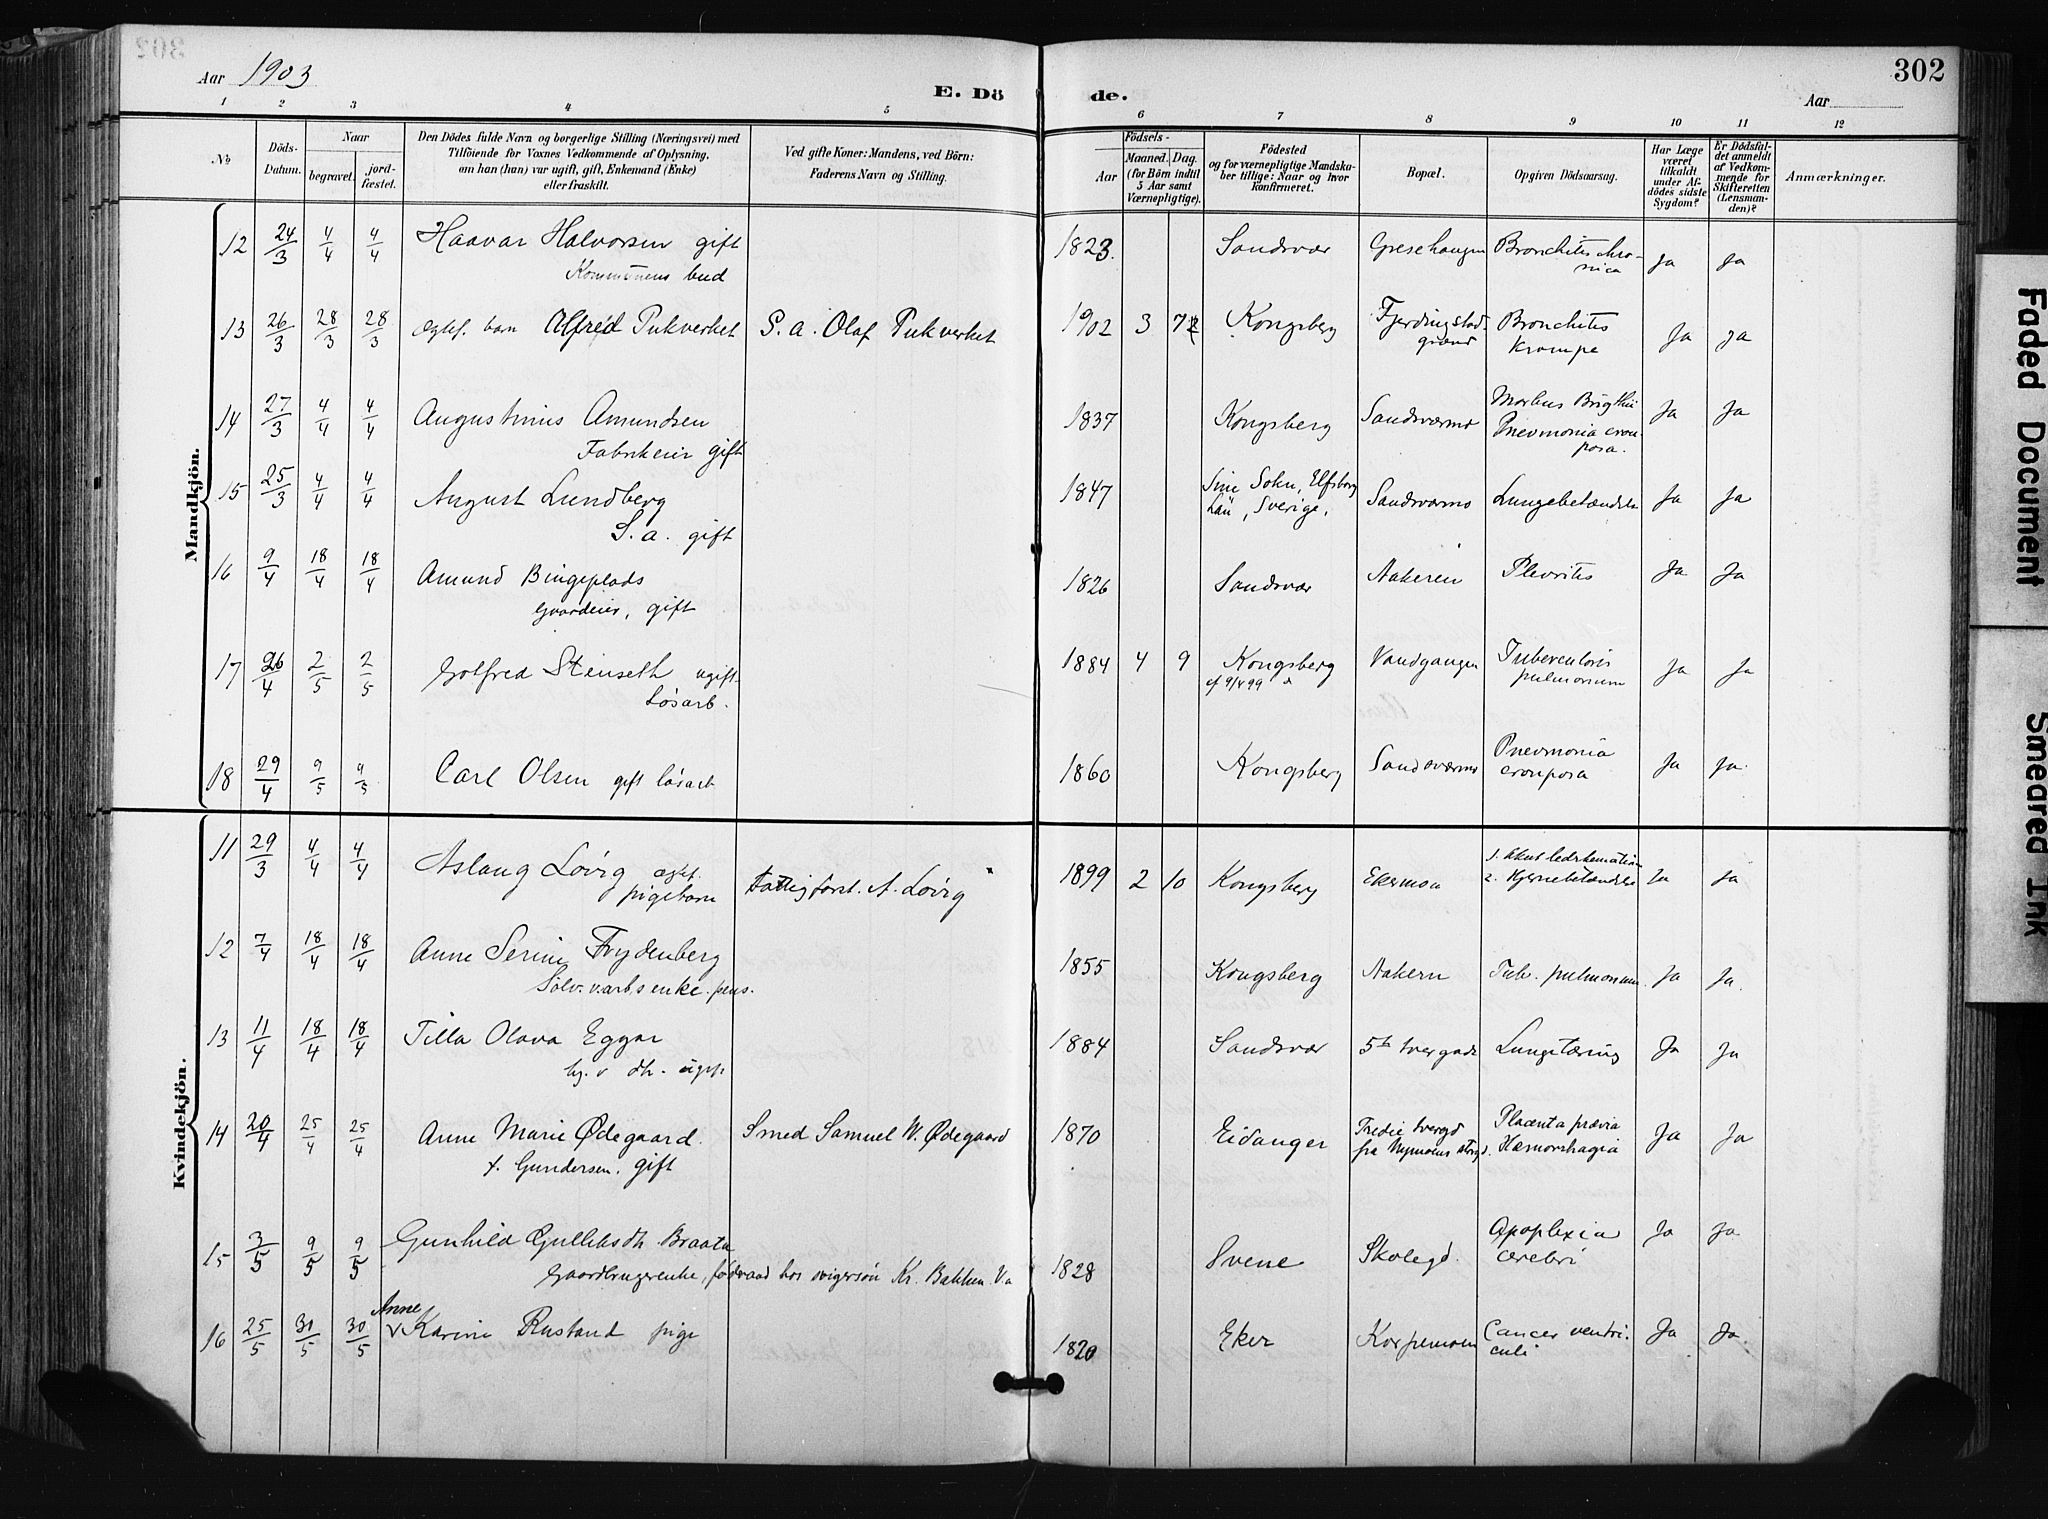 302
Aar 1903
E. Dö de.
Aar
1 2 3 4 5 6 7 8 9 10 11 12
No
Döds-Datum.
Naar
begravet.
jord-fæstet.
Den Dödes fulde Navn og borgerlige Stilling (Næringsvei) med
Tilföiende for Voxnes Vedkommende af Oplysning,
om han (hun) var ugift, gift, Enkemand (Enke)
eller fraskilt.
Ved gifte Koner: Mandens, ved Börn:
Faderens Navn og Stilling.
Födsels-
Aar
Maaned. Dag.
(for Börn indtil
5 Aar samt
Værnepligtige).
Födested
og for værnepligtige Mandska-
ber tillige: Naar og hvor
konfirmeret.
Bopæl.
Opgiven Dödsaarsag.
Har Læge
været
tilkaldt
under Af-
dödes sidste
Sygdom?
Er Dödsfal-
det anmeldt
af Vedkom-
mende for
Skifteretten
(Lensman-
den)?
Anmærkninger.
Mandkjön.
12 24/3 4/4 4/4 Haavar Halvorsen gift 1823. Sandsvær Gresehaugen Bronchitis chro-
Kommunens bud nica Ja Ja
13 26/3 28/3 28/3 ægtef. barn Alfred Pukverket S. a. Olaf Pukverket 1902 3 Kongsberg Fjerdingstad- Bronchitis
grænd Kroupa Ja Ja
14 27/3 4/4 4/4 Augustinius Amundsen 1837 Kongsberg Sandsværmo Morbus Brigthii Ja Ja
Fabrikeier gift Pnevmonia crou-
posa.
15 25/3 4/4 4/4 August Lundberg 1847 Sokn, Elfsborg Sandsværmo Lungebetændelse Ja Ja
S. a. gift Län, Sverige.
16 9/4 18/4 18/4 Amund Bingeplads 1826 Sandsvær Aakeren Plevritis Ja Ja
Gaardeier, gift
17 26/4 2/5 2/5 Gotfred Stenseth ugift 1884 4 9 Kongsberg Vandgangen Tuberculosis Ja Ja
Løsarb. cf 9/4 99 pulmonum
18 29/4 9/5 9/5 Carl Olsen gift løsarb 1860 Kongsberg Sandsværmo Pnevmonia Ja Ja.
crouposa
Kvindekjön.
11 29/3 4/4 4/4 Aslaug Lovig ægt. Fattigforst. A. Lovig 1899 2 10 Kongsberg Ekermoa 1. Akut ledrhematism
pigebarn 2. Hjernebetændelse Ja Ja
12 7/4 18/4 18/4 Anne Serine Frydenberg 1855 Kongsberg Aakern Tub. pulmonum. Ja Ja.
Sølvv.arb.s enke. pens.
13 11/4 18/4 18/4 Tilla Olava Eggar 1884 Sandsvær 5te tvergade Lungetæring Ja Ja
14 20/4 25/4 25/4 Anne Marie Ødegaard. Smed Samuel W. Ødegaard 1870 Eidanger Tredie tvergd Placenta prævia Ja Ja
f. Gundersen. gift fra Nymoens storgd. Hæmorrhagia
15 3/5 9/5 9/5 Gunhild Gulliksdt. Braata 1828 Svene Skolegd. Apoplexia Ja Ja
Gaardbrugerenke, födraad hos svigersön Kr. Bakken. cerebri
16 25/5 30/5 30/5 Anne
Karine Rustand pige 1820 Eker Korpemoen Cancer ventri- Ja Ja.
culi
Faded Document
Smeared Ink